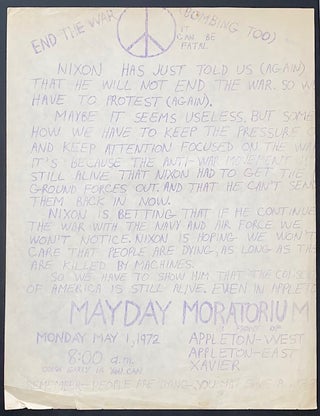 END THE WAR (BOMBING TOO)
IT CAN BE FATAL
NIXON HAS JUST TOLD US (AGAIN)
THAT HE WILL NOT END THE WAR. SO W
HAVE TO PROTEST (AGAIN).
MAYBE IT SEEMS USELESS, BUT SOM
HOW WE HAVE TO KEEP THE PRESSURE O
AND KEEP ATTENTION FOCUSED ON THE WA
IT'S BECAUSE THE ANTI-WAR MOVEMENT
STILL ALIVE THAT NIXON HAD TO GET THE
GROUND FORCES OUT. AND THAT HE CAN'T SEN
THEM BACK IN NOW.
NIXON IS BETTING THAT IF HE CONTINUE
THE WAR WITH THE NAVY AND AIR FORCE WE
WON'T NOTICE. NIXON IS HOPING WE WON'T
CARE THAT PEOPLE ARE DYING, AS LONG AS TH
ARE KILLED BY MACHINES.
SO WE HAVE TO SHOW HIM THAT THE CONSCI
OF AMERICA IS STILL ALIVE. EVEN IN APPLETO
MAYDAY MORATORIUM
MONDAY MAY 1, 1972
8:00 a.m.
IN FRONT OF
APPLETON-WEST
APPLETON-EAST
XAVIER
IF YOU CAN
REMEMBER-PEOPLE ARE DYING-YOU MAY SAVE A